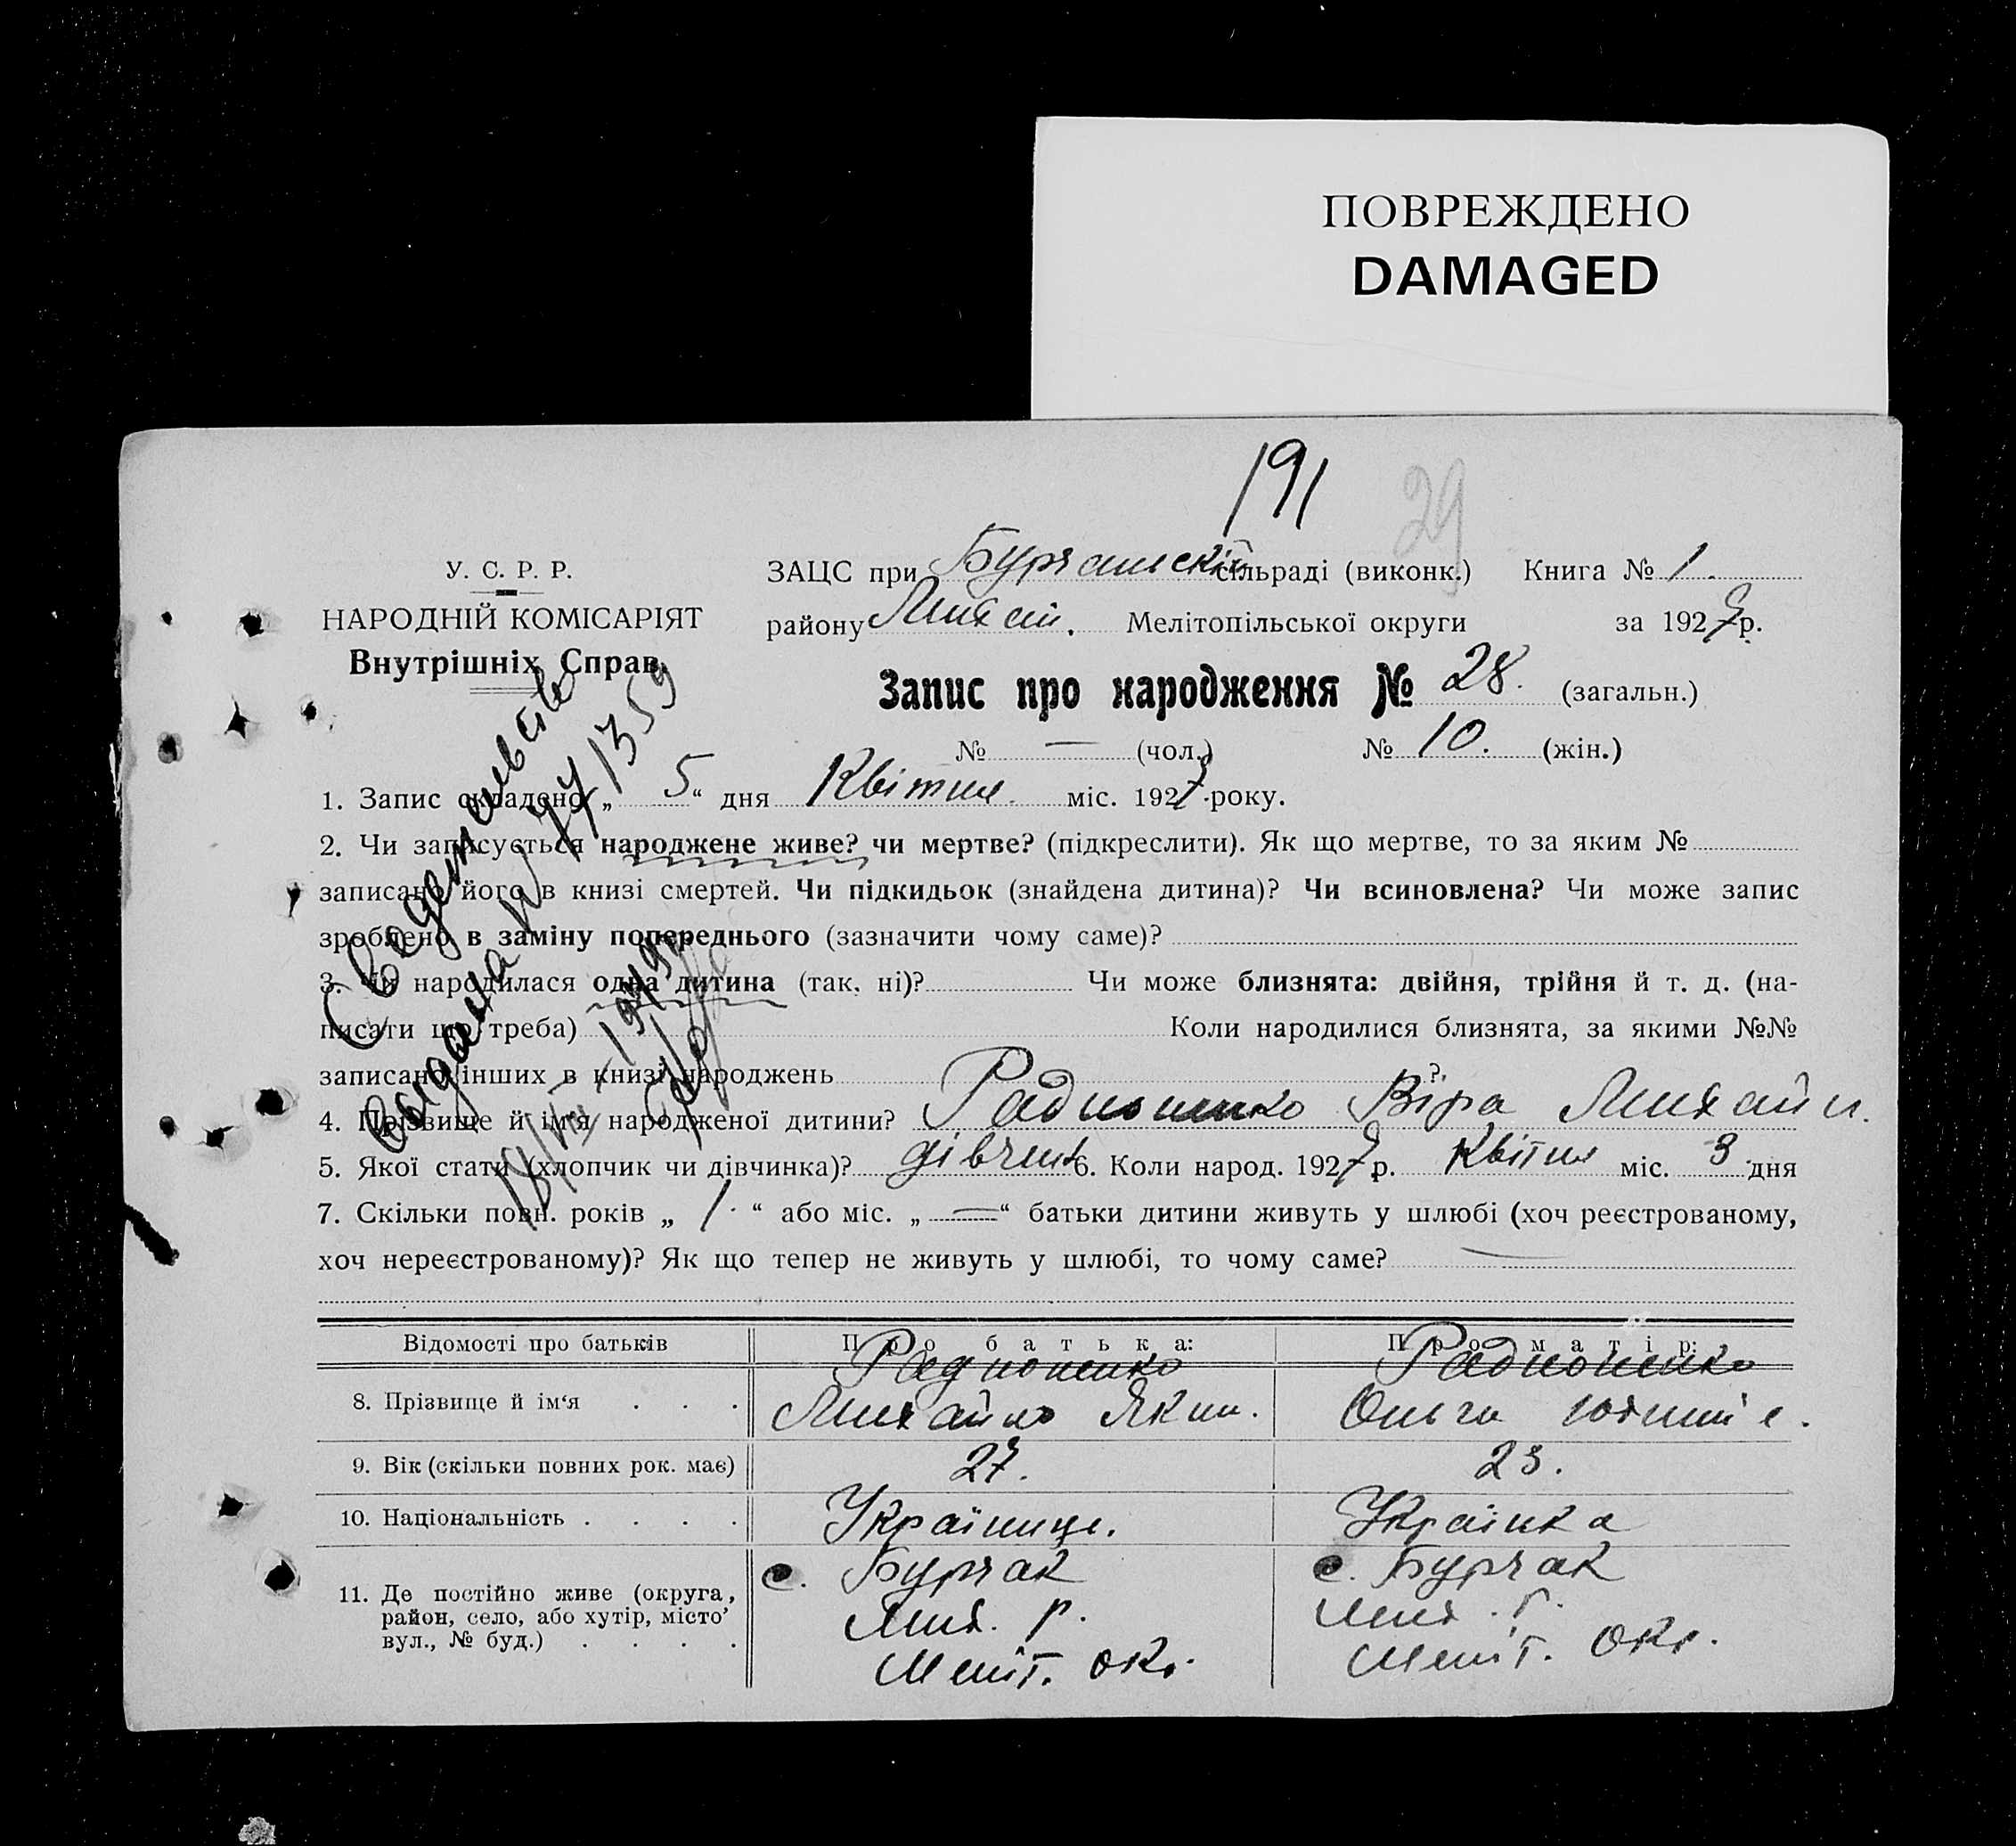 ПОВРЕЖДЕНО
DAMAGED
191 29
У. С. Р. Р.
НАРОДНІЙ КОМІСАРІЯТ
Внутрішніх Справ
ЗАЦС при сільраді (виконк.) Книга № 1.
району Михай. Мелітопільської округи за 1927 р.
Запис про народження № 28. (загальн.)
№ — (чол.) № 10. (жін.)
1. Запис складено „ 5 “ дня Квітня міс. 1927 року.
2. Чи записується народжене живе? чи мертве? (підкреслити). Як що мертве, то за яким №
записано його в книзі смертей. Чи підкидьок (знайдена дитина)? Чи всиновлена? Чи може запис
зроблено в заміну попереднього (зазначити чому саме)?
3. Чи народилася одна дитина (так, ні)? Чи може близнята: двійня, трійня й т. д. (на-
писати що треба) Коли народилися близнята, за якими №№
записано інших в книзі народжень ?
4. Прізвище й ім'я народженої дитини? Радионенко Віра Михайл.
5. Якої стати (хлопчик чи дівчинка)? дівчин 6. Коли народ. 1927 р. Квітня міс. 3 дня
7. Скільки повн. років „ 1. “ або міс. „ — “ батьки дитини живуть у шлюбі (хоч реєстрованому,
хоч нереєстрованому)? Як що тепер не живуть у шлюбі, то чому саме? —
Відомості про батьків Про батька: Про матір:
Радионенко Радионенко
8. Прізвище й ім'я . . . Михайло Яким. Ольга
9. Вік (скільки повних рок. має) 27. 23.
10. Національність . . . . Українець. Українка
11. Де постійно живе (округа, с. Бурчак с. Бурчак
район, село, або хутір, місто Мих. р. Мих. р.
вул., № буд.) . . . . Меліт. окр. Меліт. окр.
Свидетельство
выдано № 1359